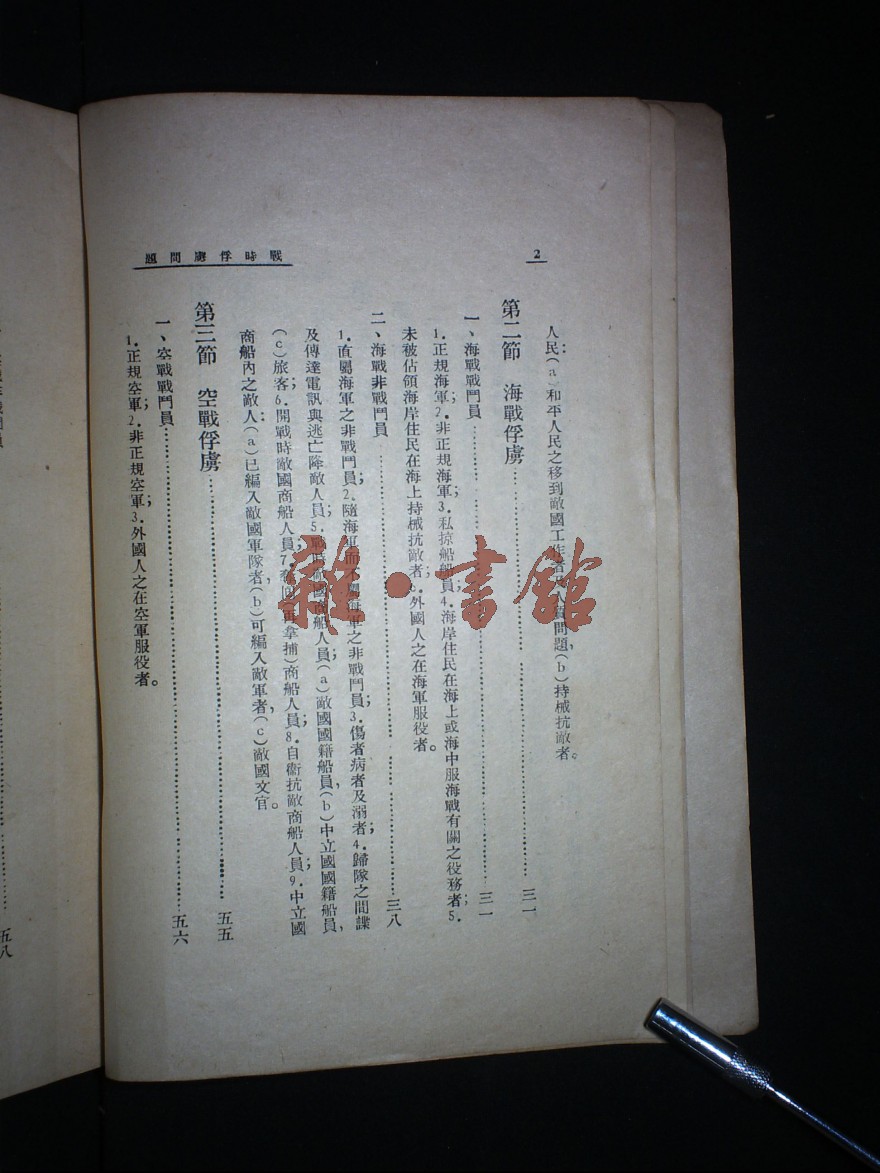 2
戰時俘虜問題
人民：(a)和平人民之移到敵國工作者及質問題，(b)持械抗敵者。
第二節 海戰俘虜……三一
一、海戰戰鬥員……三一
1.正規海軍；2.非正規海軍；3.私掠船船員；4.海岸住民在海上或海中服海戰有關之役務者；5.
未被佔領海岸住民在海上持械抗敵者；外國人之在海軍服役者。
二、海戰非戰鬥員……三八
1.直屬海軍之非戰鬥員；2.隨海軍而屬海軍之非戰鬥員；3.傷者病者及溺者；4.歸隊之間諜
及傳達電訊與逃亡降敵人員；5.戰時敵國商船人員；(a)敵國國籍船員，(b)中立國國籍船員，
(c)旅客；6.開戰時敵國商船人員；7.奪回(再拿捕)商船人員；8.自衛抗敵商船人員；9.中立國
商船內之敵人：(a)已編入敵國軍隊者，(b)可編入敵軍者，(c)敵國文官。
第三節 空戰俘虜……五五
一、空戰戰鬥員……五六
1.正規空軍；2.非正規空軍；3.外國人之在空軍服役者。
五八
雜·書館